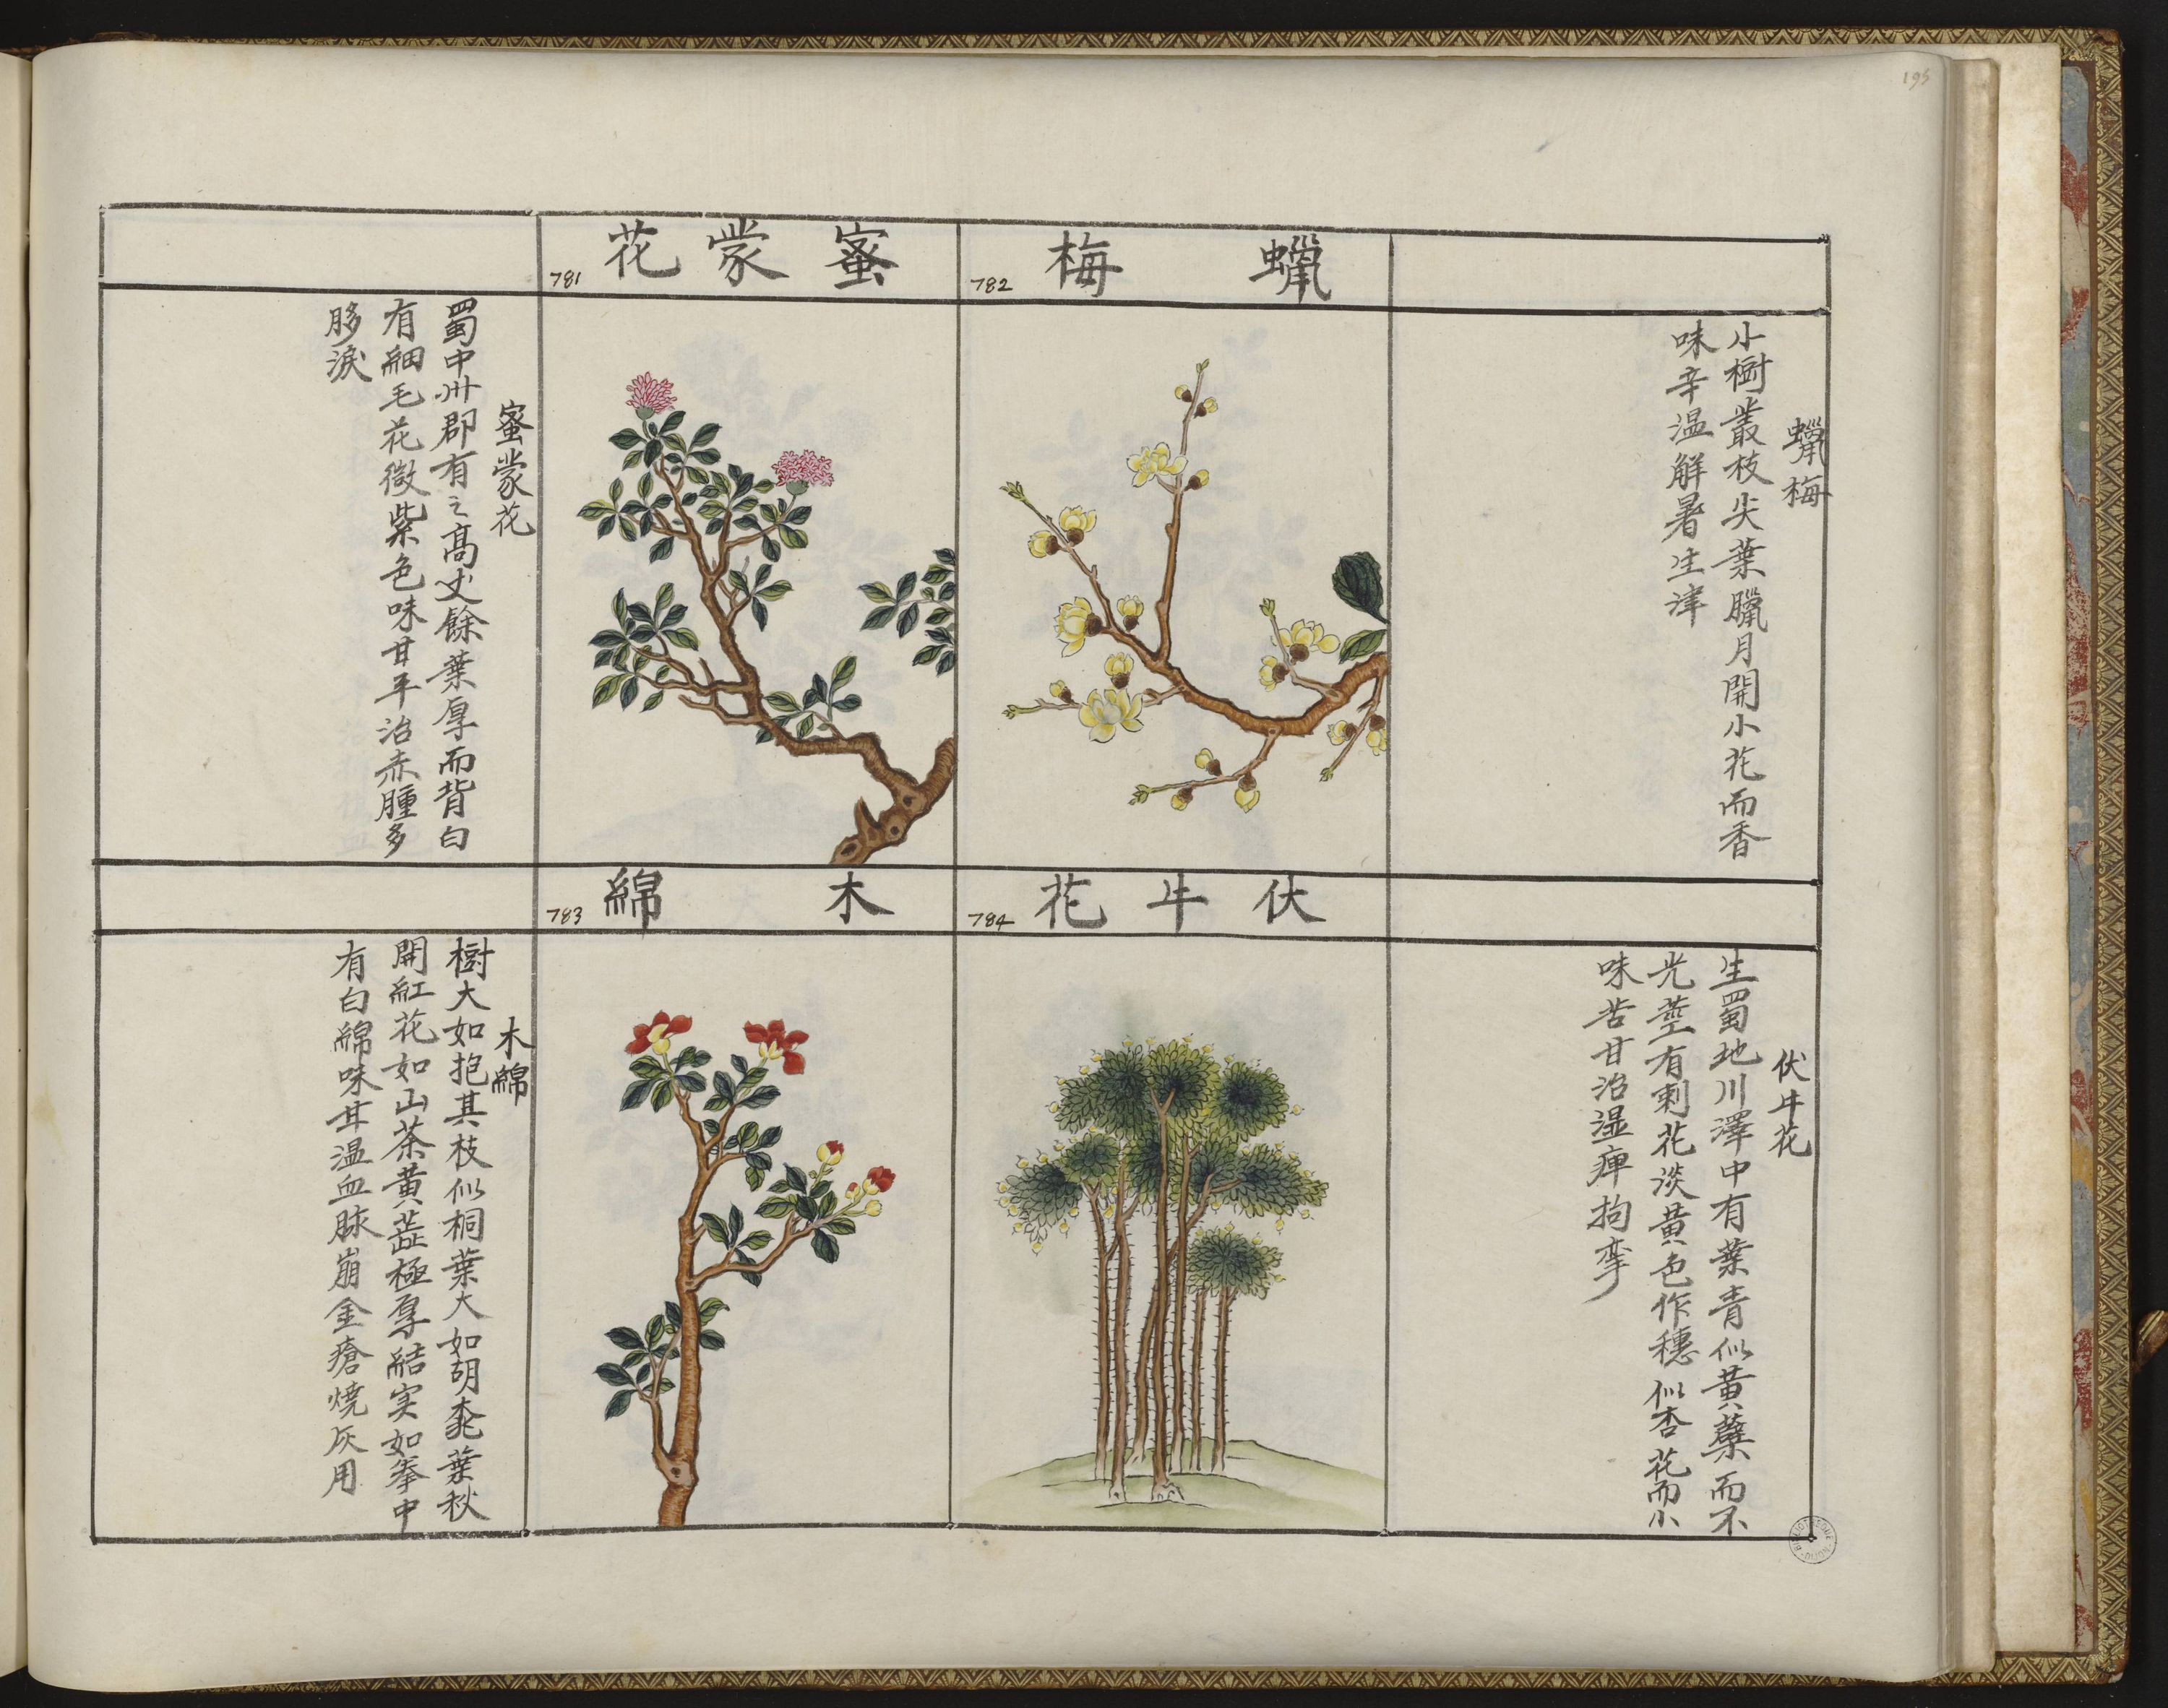 195
蠟梅
782
蠟梅
小樹叢枝尖葉臘月開小花而香
味辛溫解暑生津
蜜蒙花
781
蜜蒙花
蜀中州郡有之高丈餘葉厚而背白
有細毛花微紫色味甘平治赤腫多
眵淚
伏牛花
784
伏牛花
生蜀地川澤中有葉青似黃蘗而不
光莖有刺花淡黃色作穗似杏花而小
味苦甘治濕痺拘攣
木綿
783
木綿
樹大如抱其枝似桐葉大如胡桃葉秋
開紅花如山茶黃蕊極厚結实如拳中
有白綿味甘溫血脉崩金瘡燒灰用